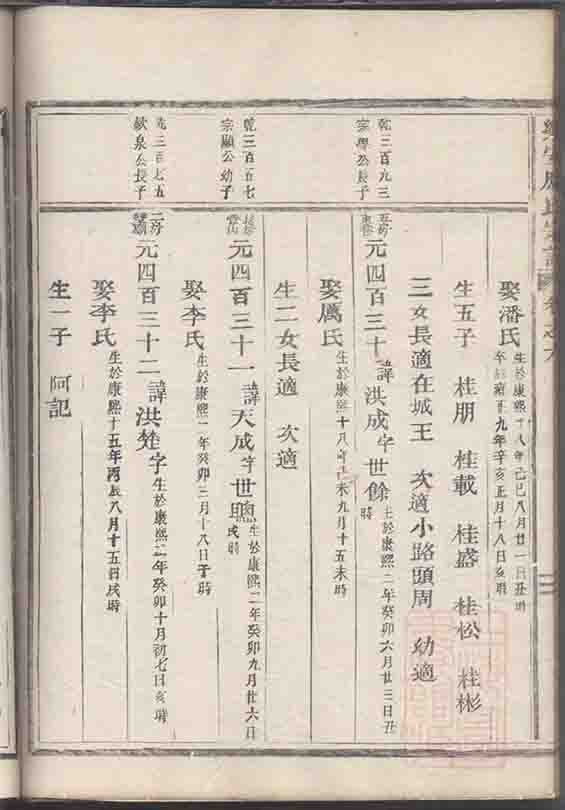 娶潘氏 生於康熙十八年己巳八月廿一日丑時
年雍正九年辛亥正月十八日亥時
生五子 桂朋 桂載 桂盛 桂松 桂彬
三女長適在城王 次適小路頭周 幼適
乾三百九三
宗學公長子
元四百三十 諱洪成字世餘 生於康熙二年癸卯六月廿三日丑時
娶厲氏 生於康熙十八年己未九月十五未時
生二女長適 次適
乾三百五七
宗顯公幼子
元四百三十一 諱天成字世聰 生於康熙二年癸卯九月廿六日戌時
娶李氏 生於康熙二年癸卯三月十八日子時
三百七五
欽泉公長子
二房
元四百三十二 諱洪字 生於康熙二年癸卯十月初七日亥時
娶李氏 生於康熙十五年丙辰八月十五日戌時
生一子 阿記